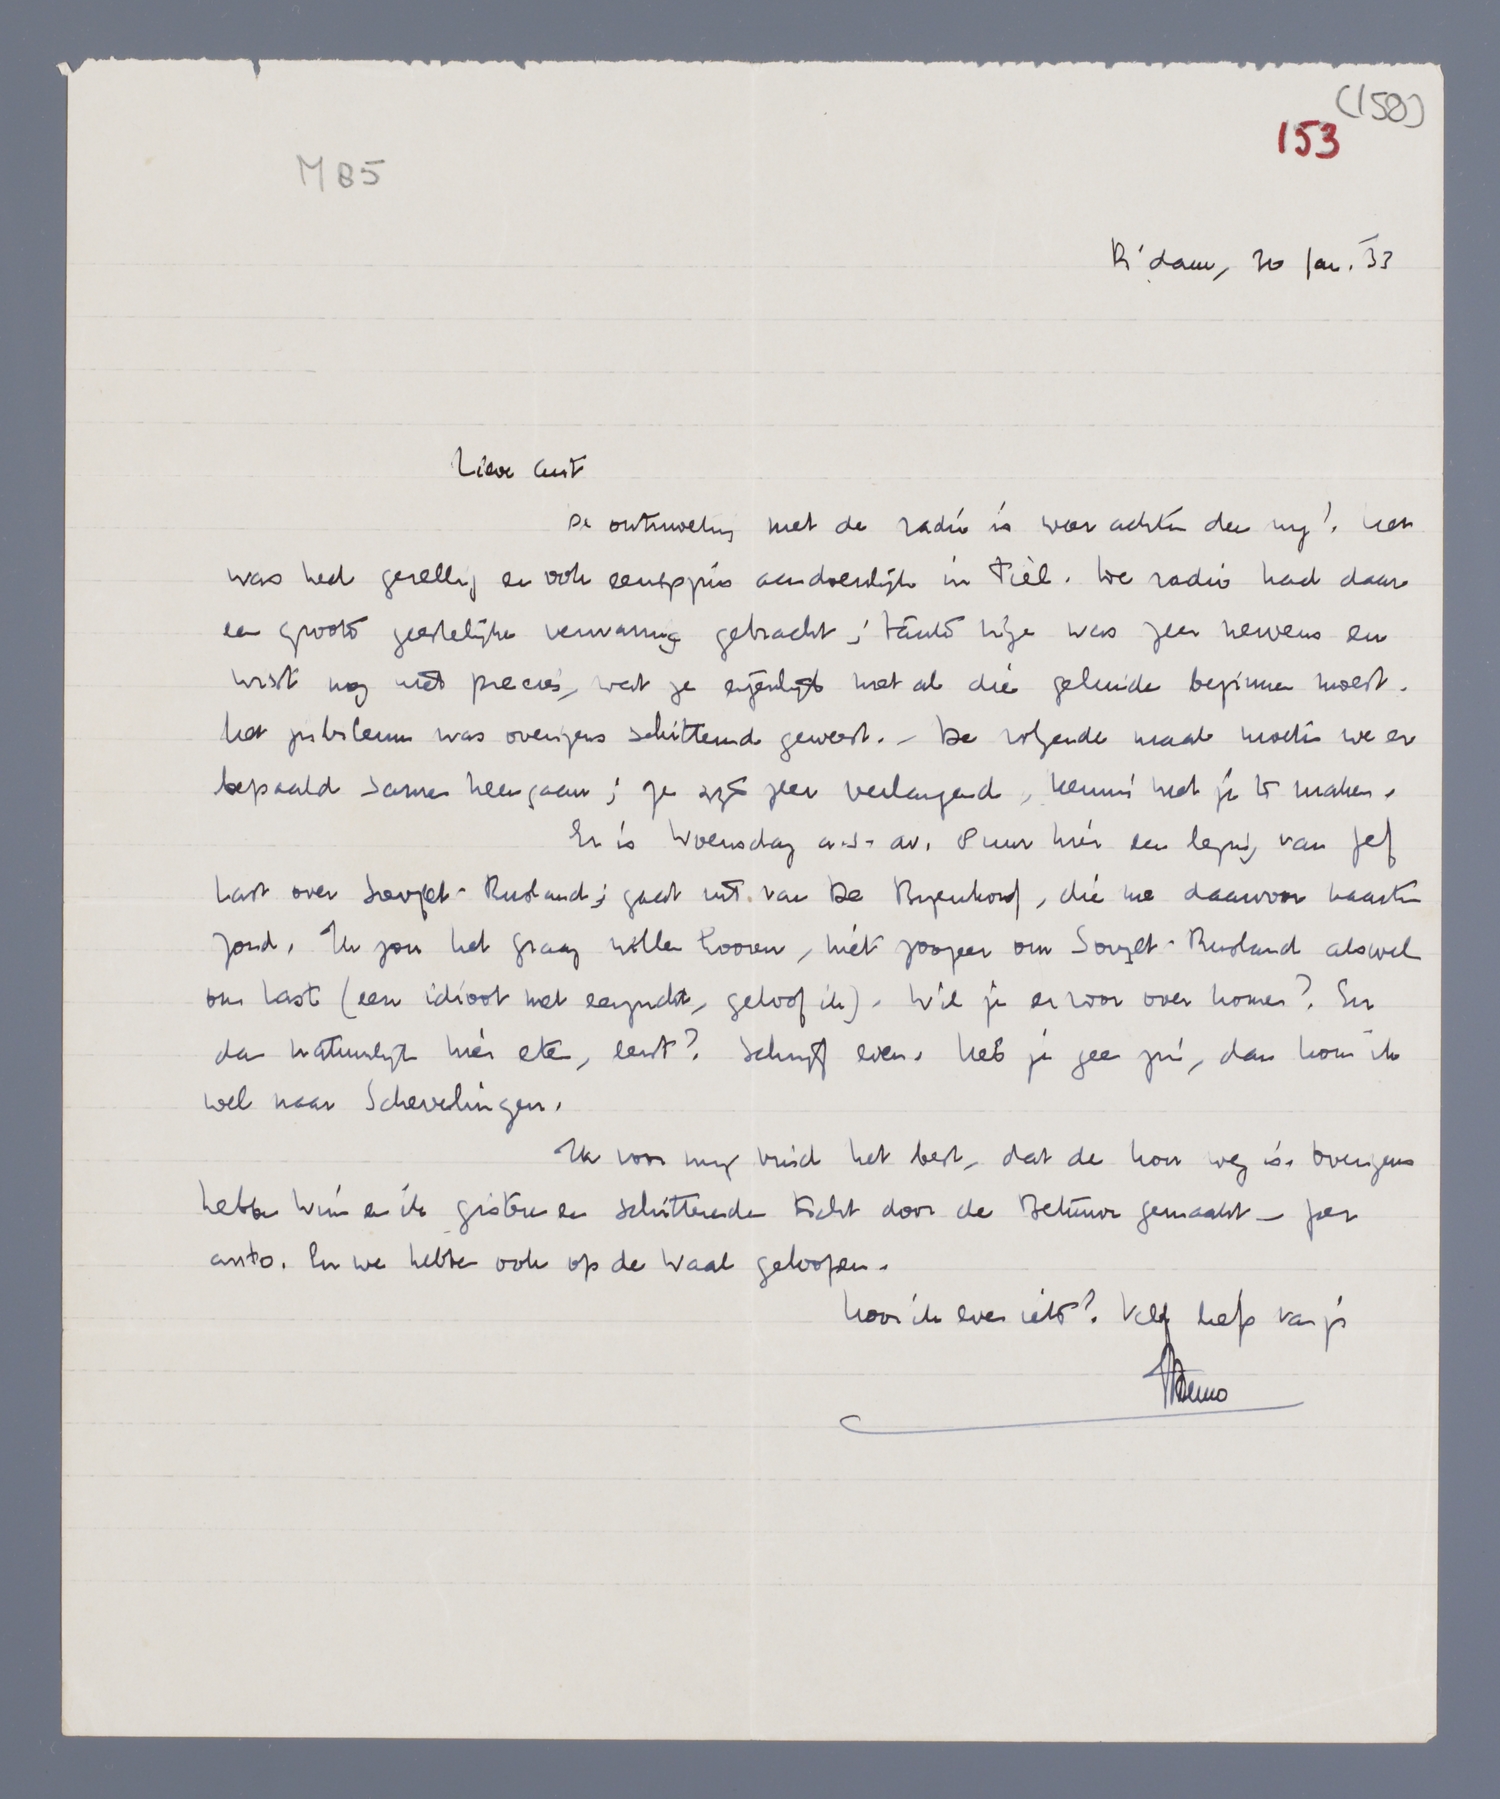 (158)
153
M85
R'dam, 30 Jan. '33
Lieve Ant
De ontmoeting met de radio is weer achter den rug! Het
was heel gezellig en ook eenigszins aandoenlijk in Tiel. De radio had daar
een groote geestelijke verwarring gebracht; tante was zeer nerveus en
wist nog niet precies, wat ze eigenlijk met al die geluiden beginnen moest.
Het jubileum was overigens schitterend geweest. – De volgende maal moeten we er
bepaald samen heengaan; ze zijn zeer verlangend, kennis met je te maken.
Er is Woensdag a.s. av. 8 uur hier een lezing van Jef
Last over Sovjet-Rusland; gaat uit van De Bijenkorf, die me daarvoor kaarten
zond. Ik zou het graag willen hooren, niet zoozeer om Sovjet-Rusland alswel
om Last (een idioot met eerzucht, geloof ik). Wil je ervoor over komen? En
dan natuurlijk hier eten, eerst? Schrijf even. Heb je geen zin, dan kom ik
wel naar Scheveningen.
Ik voor mij vind het best, dat de kou weg is. Overigens
hebben Wim en ik gisteren een schitterende tocht door de Betuwe gemaakt – per
auto. En we hebben ook op de Waal geloopen.
Hoor ik even iets? Veel liefs van je
Menno